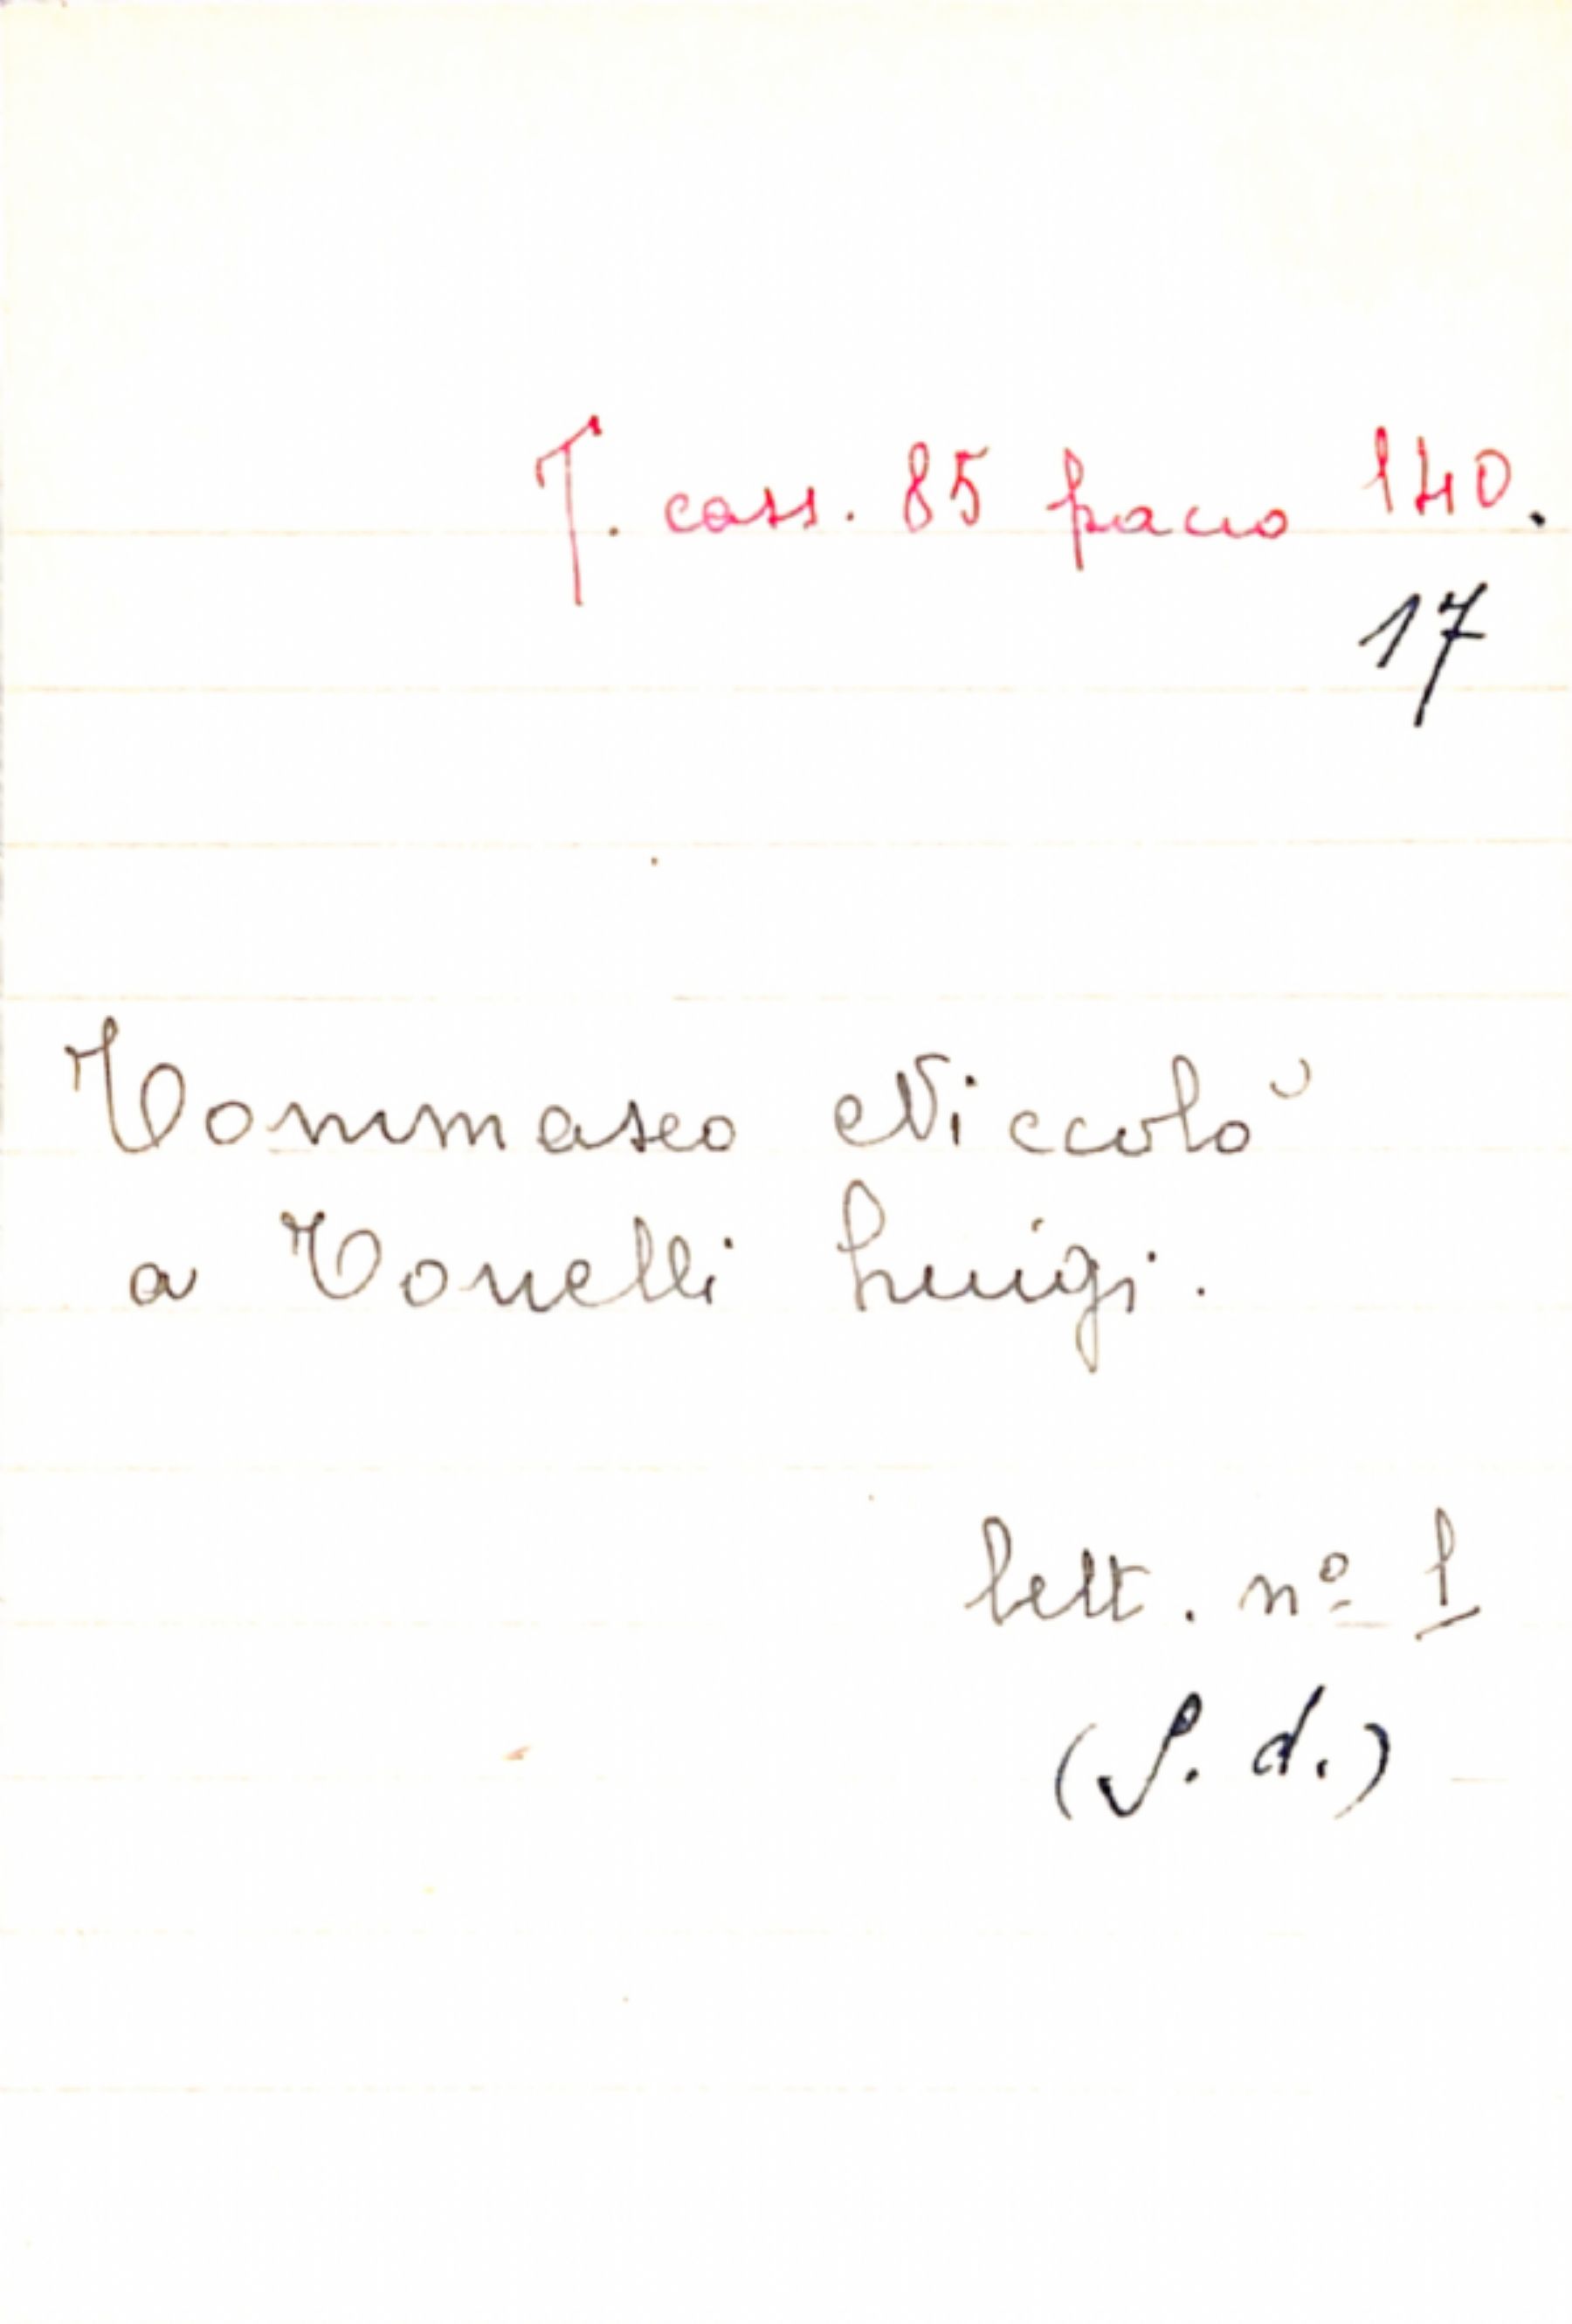 T. cass. 85 pacco 140.
17
Tommaseo Niccolò
a Tonelli Luigi.
lett. nº 1
(S. d.)